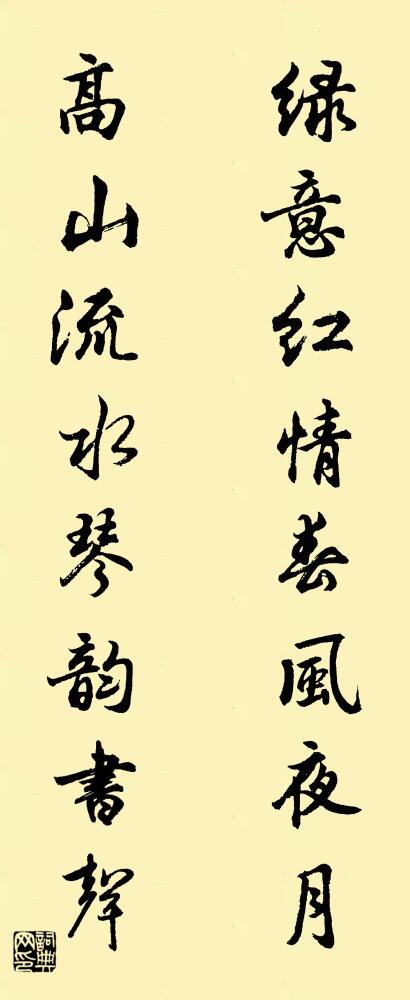 绿意红情春風夜月
高山流水琴韵書聲
詞典网印